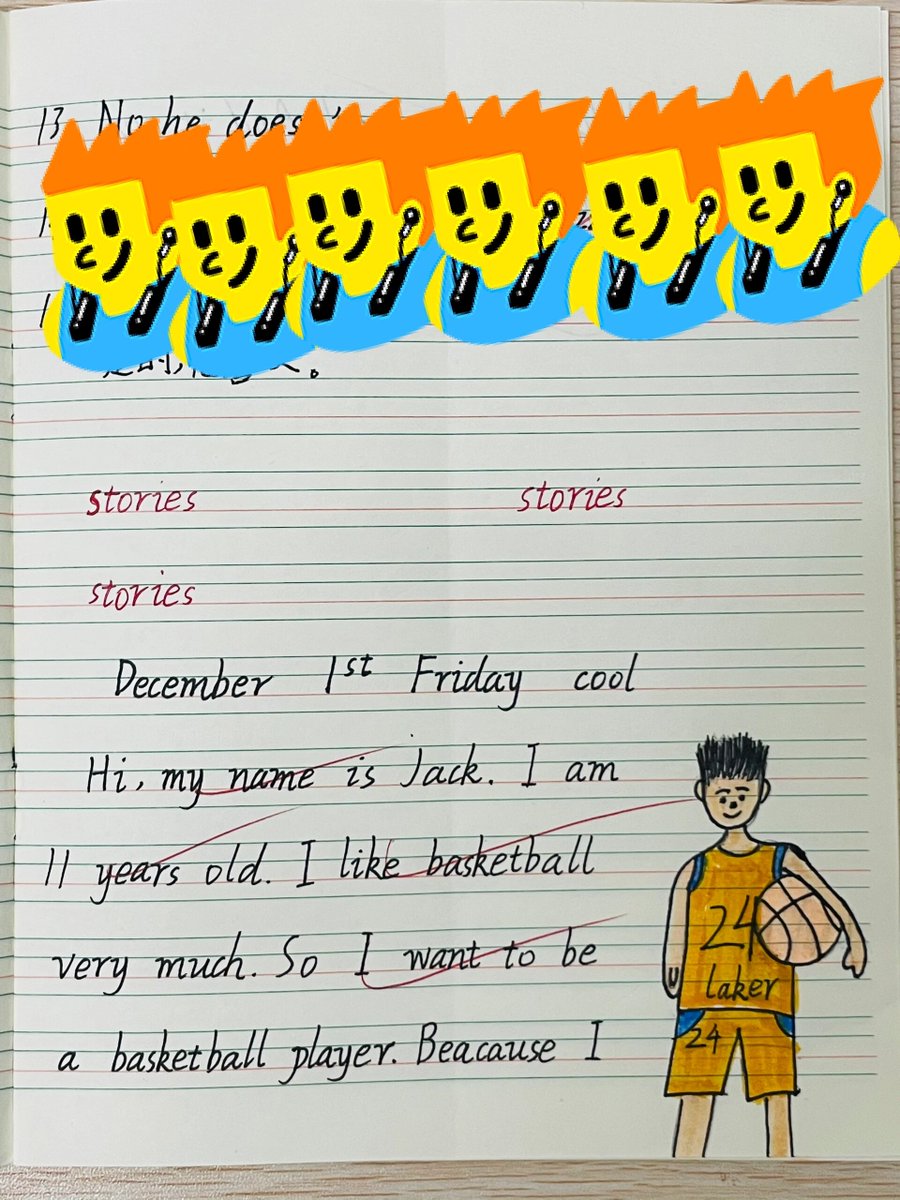 13 No he does
stories stories
stories
December 1st Friday cool
Hi, my name is Jack. I am
11 years old. I like basketball
very much. So I want to be
a basketball player. Beacause I
24
laker
24